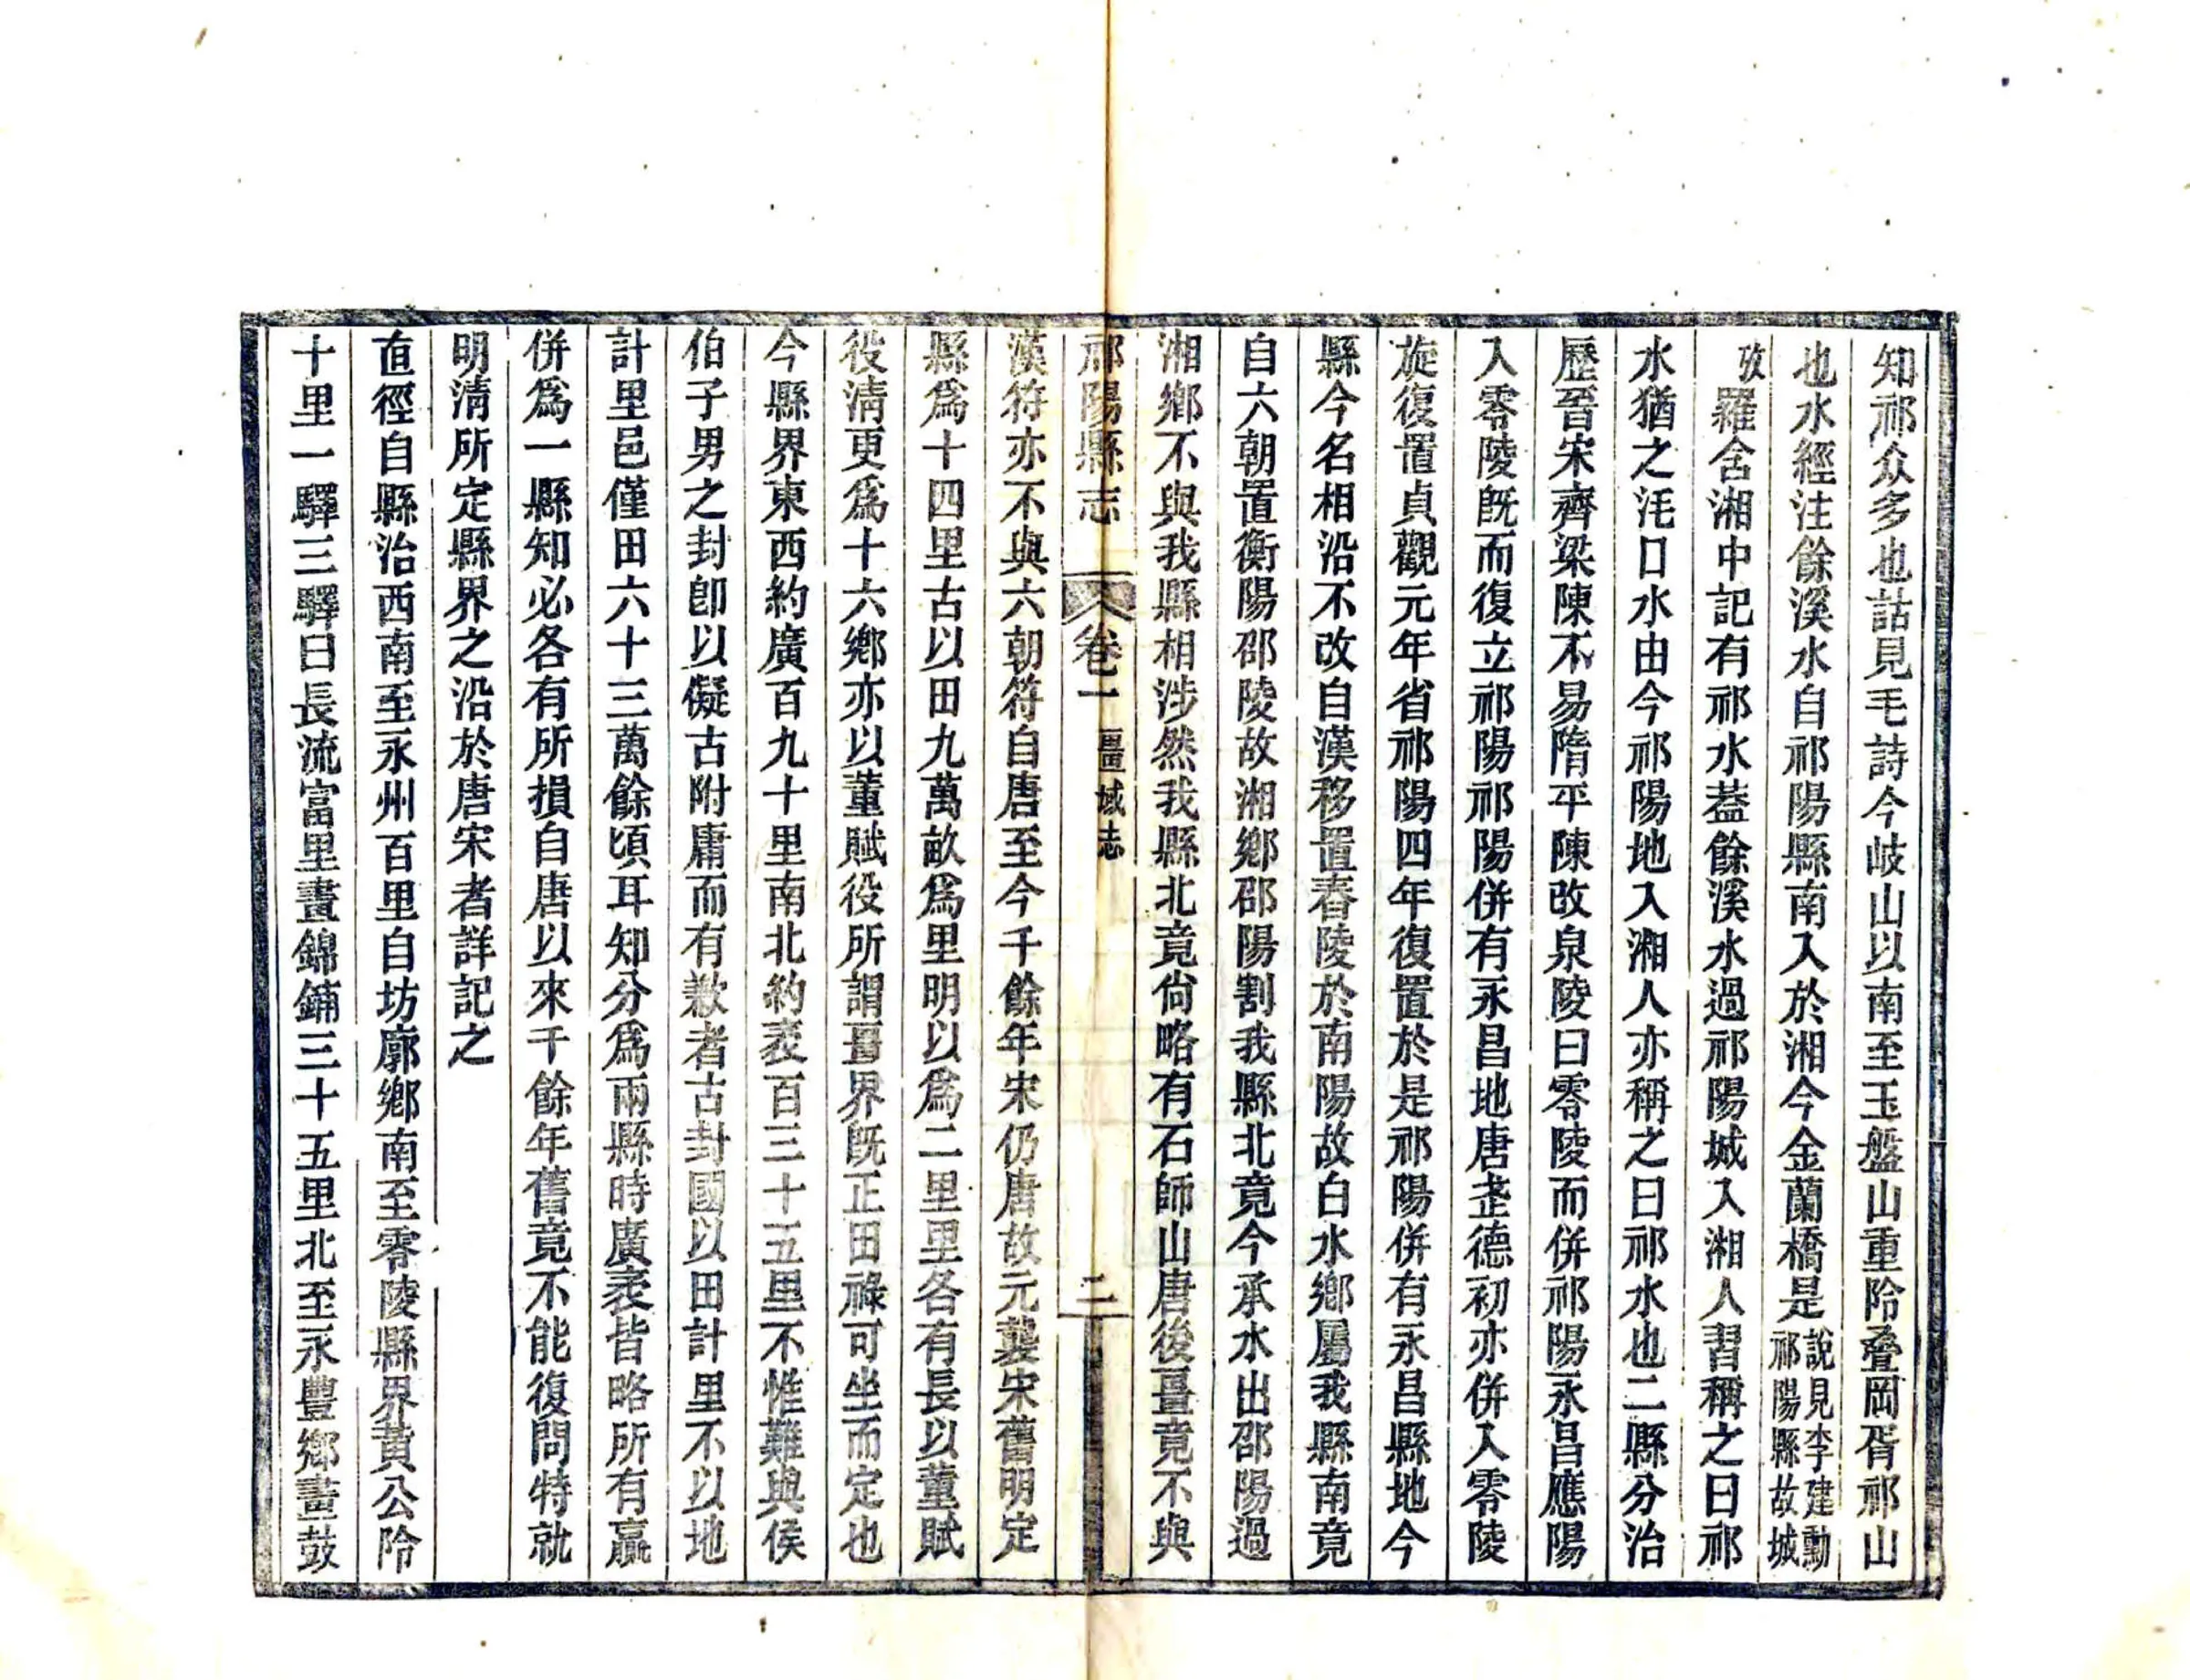 知祁众多也詁見毛詩今岐山以南至玉盤山重阾疊岡胥祁山
也水經注餘溪水自祁陽縣南入於湘今金蘭橋是說見李建勳祁陽縣故城
攷羅含湘中記有祁水葢餘溪水過祁陽城入湘人習稱之曰祁
水猶之浘口水由今祁陽地入湘人亦稱之曰祁水也二縣分治
歷晉宋齊梁陳不易隋平陳改泉陵曰零陵而併祁陽永昌應陽
入零陵既而復立祁陽祁陽併有永昌地唐武德初亦併入零陵
旋復置貞觀元年省祁陽四年復置於是祁陽併有永昌縣地今
縣今名相沿不改自漢移置舂陵於南陽故白水鄉屬我縣南竟
自六朝置衡陽邵陵故湘鄉邵陽割我縣北竟今承水出邵陽過
湘鄉不與我縣相涉然我縣北竟尙略有石師山唐後畺竟不與
祁陽縣志 卷一 畺域志 二
漢符亦不與六朝符自唐至今千餘年宋仍唐故元襲宋舊明定
縣爲十四里古以田九萬畝爲里明以爲二里里各有長以董賦
役淸更爲十六鄉亦以董賦役所謂畺界既正田祿可坐而定也
今縣界東西約廣百九十里南北約袤百三十五里不惟難與侯
伯子男之封卽以儗古附庸而有歉者古封國以田計里不以地
計里邑僅田六十三萬餘頃耳知分爲兩縣時廣袤皆略所有贏
併爲一縣知必各有所損自唐以來千餘年舊竟不能復問特就
明淸所定縣界之沿於唐宋者詳記之
直徑自縣治西南至永州百里自坊廓鄉南至零陵縣界黃公阾
十里一驛三驛曰長流富里晝錦鋪三十五里北至永豐鄉畫鼓